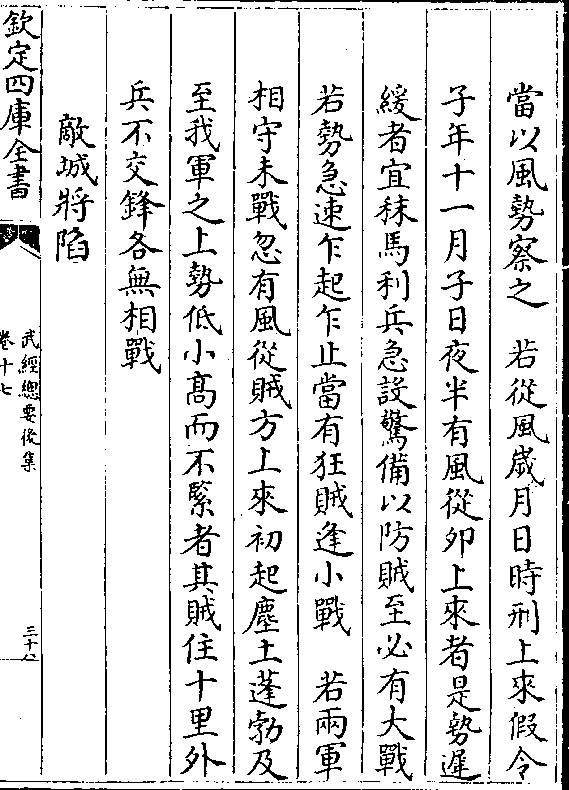 當以風勢察之　若從風嵗月日時刑上來假令
子年十一月子日夜半有風從夘上來者是勢遲
緩者宜秣馬利兵急設驚備以防賊至必有大戰
若勢急速乍起乍止當有狂賊逢小戰　若兩軍
相守未戰忽有風從賊方上來初起塵土蓬勃及
至我軍之上勢低小髙而不緊者其賊住十里外
兵不交鋒各無相戰
敵城將陷
欽定四庫全書
武經總要後集
卷十七
三十八